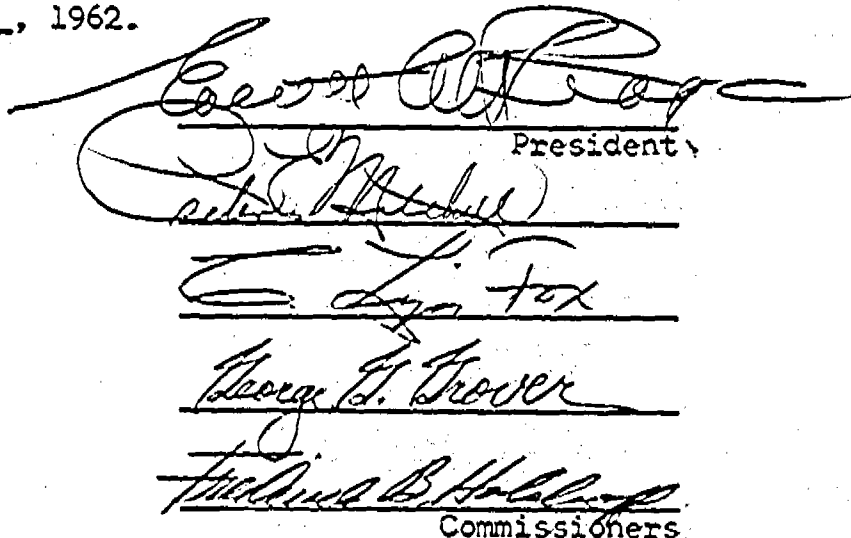 , 1962.
President
Mitchell
C. Lyn Fox
George G. Grover
Frederick B. Holoboff
Commissioners